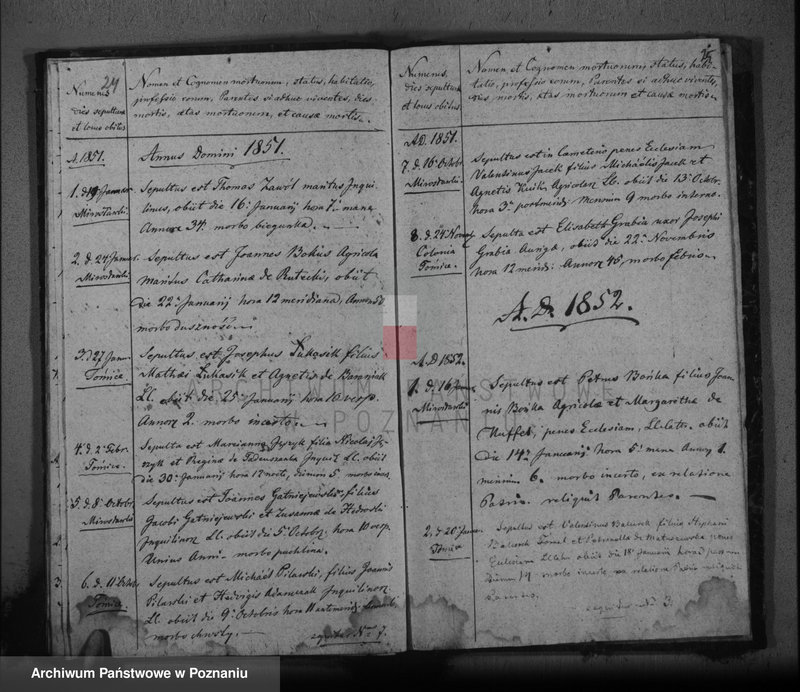 24
Numerus,
dies sepulturæ
et locus obitus
Nomen et Cognomen mortuorum, status, habitatio,
professio eorum, Parentes si adhuc viventes, dies
mortis, ætas mortuorum, et causæ mortis.
A. 1851.
Annus Domini 1851.
1. d. 19 Januar
Mirosławki
Sepultus est Thomas Zawól maritus Inqui-
linus, obiit die 16. Januarij hora 7. mane
Annor 34. morbo biegunka.
2. d. 24 Januar.
Mirosławki
Sepultus est Joannes Bokus Agricola
maritus Catharinæ de Rutecki, obiit
die 22. Januarij hora 12 meridiana, Annor 50
morbo duszność.
3. d. 27 Janu.
Tomice
Sepultus est Josephus Łukasik filius
Mathæi Łukasik et Agnetis de Baraniak
Ll. obiit die 25. Januarij hora 10 vesp.
Annor 2. morbo incerto.
4. d. 2 Febr.
Tomice
Sepulta est Marcianna filia Nicolai
et Regina de Inquil. Ll. obiit
die 30. Januarij hora 12 nocte, 5 morbo
5. d. 8 Octobr.
Mirosławki
Sepultus est Joannes Gatniejewski filius
Jacobi Gatniejewski et Zusannæ de
Inquilinor Ll. obiit die 5 Octobr. hora 10 vesp.
Unius Anni morbo puchlina.
6. d. 11 Octobr.
Tomice
Sepultus est Michael Pilarski, filius Joannis
Pilarski et Hedvigis Adamczak Inquilinor
Ll. obiit die 9. Octobris hora 11
morbo
sequitur Nro 7.
25
Numerus,
dies sepulturæ
et locus obitus.
Nomen et Cognomen mortuorum, status, habi-
tatio, professio eorum, Parentes si adhuc viventes,
dies mortis, ætas mortuorum et causæ mortis.
AD. 1851.
7. d. 16 Octobr
Mirosławki
Sepultus est in Cæmeterio penes Ecclesiam
Valentinus Jacek filius Michaëlis Jacek et
Agnetis Agricolar Ll. obiit die 13 Octobr.
hora 3 postmerid. Mensium 9 morbo interno.
8. d. 24 Novemb
Colonia
Tomice.
Sepulta est Elisabeth Grabia uxor Josephi
Grabia obiit die 22. Novembris
hora 12 merid. Annor 45, morbo febris.
A. D. 1852.
A. D 1852.
1. d. 16 Januar
Mirosławki
Sepultus est Petrus Bońka filius Joan-
nis Bońka Agricolæ et Margarethæ de
Nuffer, penes Ecclesiam, Ll. obiit
die 14. Januarij hora 5. mane Annor 1.
mensium 6. morbo incerto, ex relatione
Patris. reliquit Parentes.
2. d 20 Januar
Tomice
Sepultus est Valentinus filius Stephani
et Petronellæ de penes
Ecclesiam obiit die 18 Januarij
morbo incerto ex relatione Patris reliquit
Parentes.
sequitur 3.
ARCHIWUM PAŃSTWOWE
W POZNANIU
Archiwum Państwowe w Poznaniu